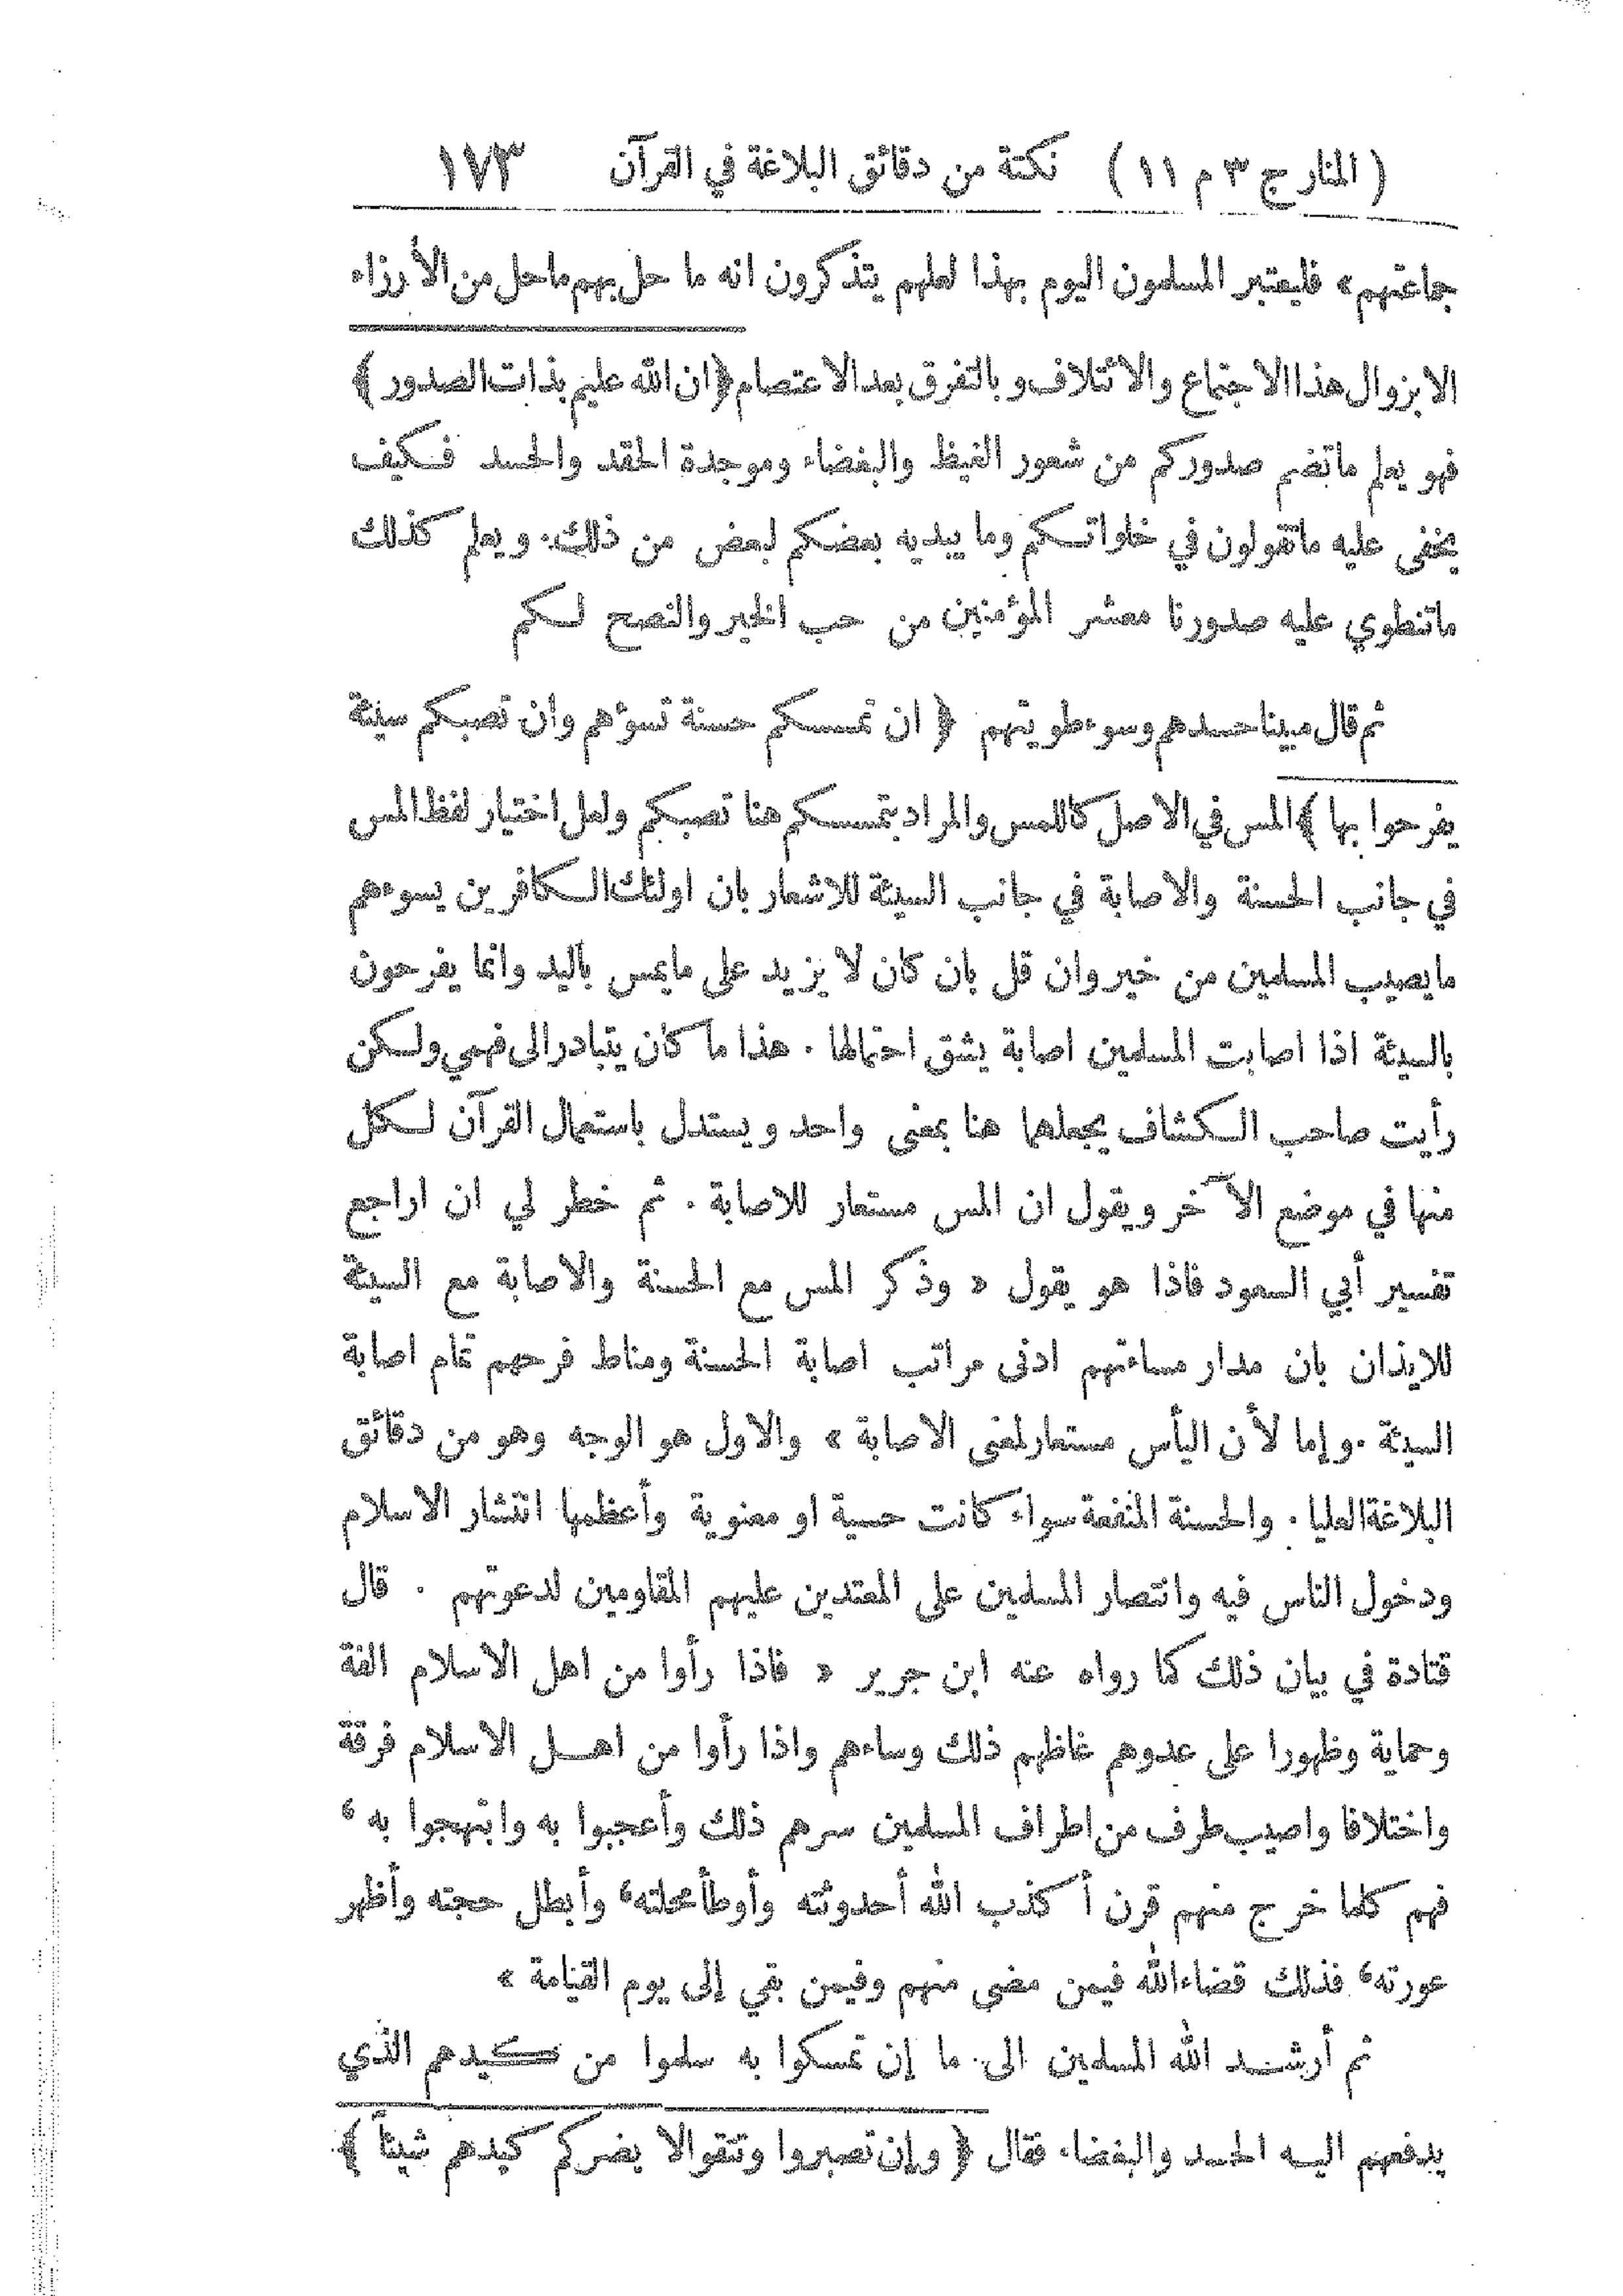 ( المنار ج ٣ م ١١ ) نكتة من دقائق البلاغة في القرآن ١٧٣
جماعتهم » فليعتبر المسلمون اليوم بهذا لعلهم يتذكرون انه ما حل بهم ما حل من الأرزاء
الا بزوال هذا الاجتماع والائتلاف وبالتفرق بعد الاعتصام ﴿ ان الله عليم بذات الصدور ﴾
فهو يعلم ما تضم صدوركم من شعور الغيظ والبغضاء وموجدة الحقد والحسد فكيف
يخفى عليه ما تقولون في خلواتكم وما يبديه بعضكم لبعض من ذلك . ويعلم كذلك
ما تنطوي عليه صدورنا معشر المؤمنين من حب الخير والنصح لكم
ثم قال مبينا حسدهم وسوء طويتهم ﴿ ان تمسسكم حسنة تسؤهم وان تصبكم سيئة
يفرحوا بها ﴾ المس في الاصل كاللمس والمراد بتمسسكم هنا تصبكم ولعل اختيار لفظ المس
في جانب الحسنة والاصابة في جانب السيئة للاشعار بان اولئك الكافرين يسوءهم
ما يصيب المسلمين من خير وان قل بان كان لا يزيد على ما يمس باليد وانما يفرحون
بالسيئة اذا اصابت المسلمين اصابة يشق احتمالها . هذا ما كان يتبادر الى فهمي ولكن
رأيت صاحب الكشاف يجعلهما هنا بمعنى واحد ويستدل باستعمال القرآن لكل
منهما في موضع الآخر ويقول ان المس مستعار للاصابة . ثم خطر لي ان اراجع
تفسير أبي السعود فاذا هو يقول « وذكر المس مع الحسنة والاصابة مع السيئة
للايذان بان مدار مساءتهم ادنى مراتب اصابة الحسنة ومناط فرحهم تمام اصابة
السيئة . وإما لأن اليأس مستعار لمعنى الاصابة » والاول هو الوجه وهو من دقائق
البلاغة العليا . والحسنة المنفعة سواء كانت حسية او معنوية وأعظمها انتشار الاسلام
ودخول الناس فيه وانتصار المسلمين على المعتدين عليهم المقاومين لدعوتهم . قال
قتادة في بيان ذلك كما رواه عنه ابن جرير « فاذا رأوا من اهل الاسلام الفة
وحماية وظهورا على عدوهم غاظهم ذلك وساءهم واذا رأوا من اهل الاسلام فرقة
واختلافا واصيب طرف من اطراف المسلمين سرهم ذلك وأعجبوا به وابتهجوا به ،
فهم كلما خرج منهم قرن أكذب الله أحدوثته وأوطأ محلته ، وأبطل حجته وأظهر
عورته ، فذلك قضاء الله فيمن مضى منهم وفيمن بقي إلى يوم القيامة »
ثم أرشد الله المسلمين الى ما إن تمسكوا به سلموا من كيدهم الذي
يدفعهم اليه الحسد والبغضاء فقال ﴿ وإن تصبروا وتتقوا لا يضركم كيدهم شيئاً ﴾